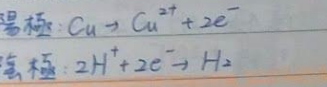 陽極:Cu→Cu²⁺+2e⁻
陰極:2H⁺+2e⁻→H₂